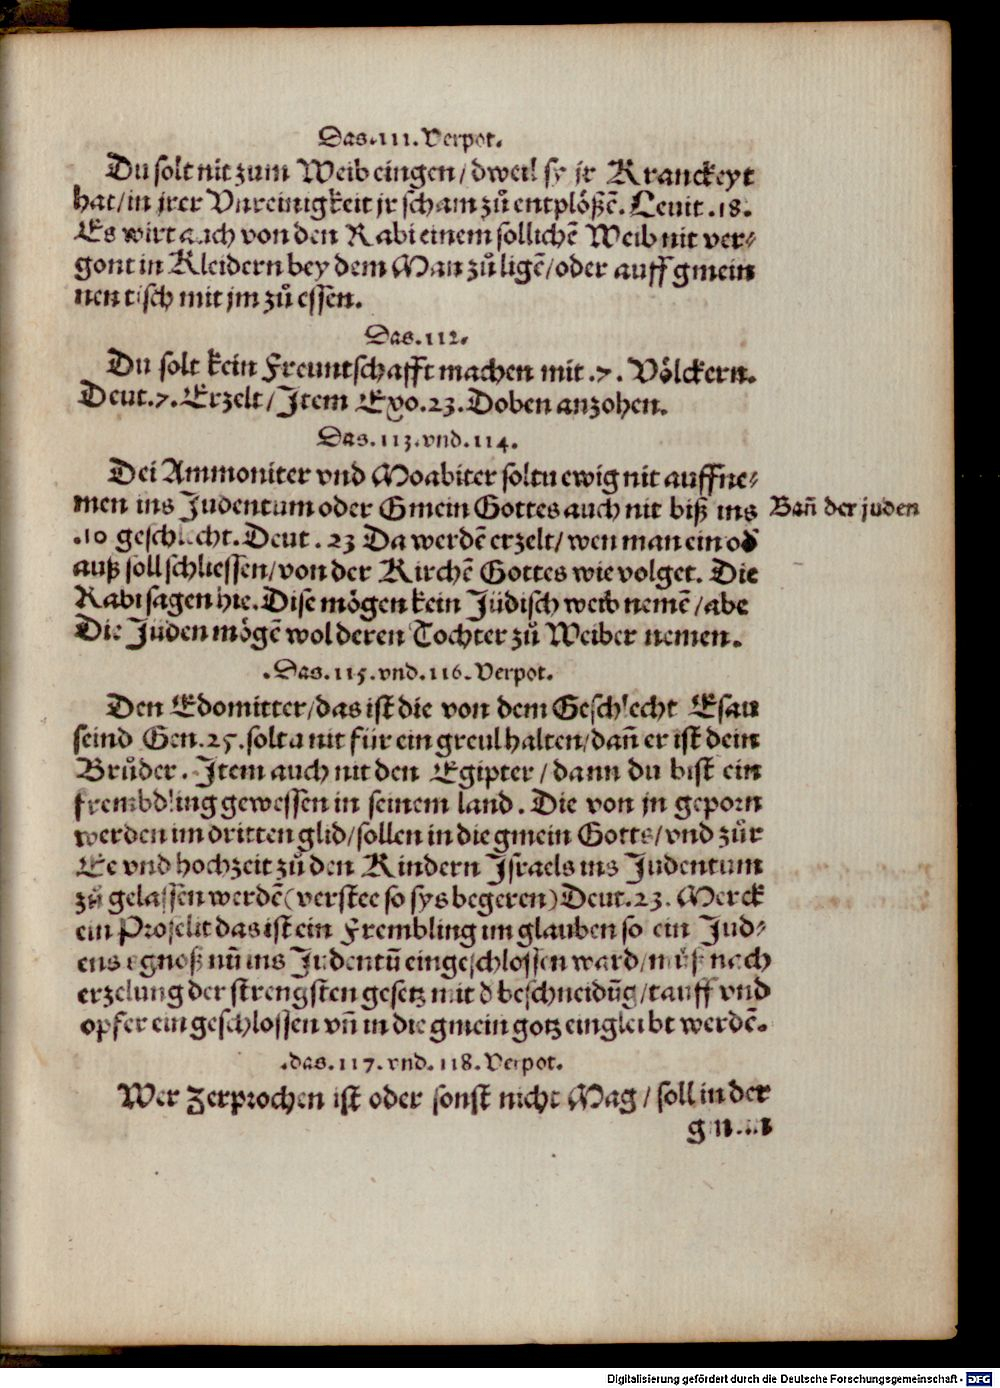 Das.111.Verpot.
Du solt nit zum Weib eingen/dweil sy jr Kranckeyt
hat/in jrer Vnreinigkeit jr scham zů entplößē. Leuit.18.
Es wirt auch von den Rabi einem sollichē Weib nit ver-
gont in Kleidern bey dem Man zů ligē/oder auff gmein
nen tisch mit jm zů essen.
Das.112.
Du solt kein Freuntschafft machen mit .7. Völckern.
Deut.7. Erzelt/Item Exo.23. Doben anzohen.
Das.113.vnd.114.
Dei Ammoniter vnd Moabiter soltu ewig nit auffne-
men ins Judentum oder Gmein Gottes auch nit biß ins
Bañ der juden
.10 geschlecht. Deut.23 Da werdē erzelt/wen man ein od
auß soll schliessen/von der Kirchē Gottes wie volget. Die
Rabi sagen hie. Dise mögen kein Jüdisch weib nemē/abe
Die Jüden mögē wol deren Tochter zů Weiber nemen.
.Das.115.vnd.116.Verpot.
Den Edomitter/das ist die von dem Geschlecht Esau
seind Gen.25. solt a nit für ein greul halten/dañ er ist dein
Brůder. Item auch nit den Egipter/dann du bist ein
frembdling gewessen in seinem land. Die von jn geporn
werden im dritten glid/sollen in die gmein Gotts/vnd zůr
Ee vnd hochzeit zů den Kindern Israels ins Judentum
zů gelassen werdē(verstee so sys begeren)Deut.23. Merck
ein Proselit das ist ein Frembling im glauben so ein Jud-
ens gnoß nũ ins Judentũ eingeschlossen ward/můß nach
erzelung der strengsten gesetz mit d beschneidũg/tauff vnd
opfer ein geschlossen vñ in die gmein gotz eingleibt werdē.
.das.117.vnd.118.Verpot.
Wer Zerprochen ist oder sonst nicht Mag/soll in der
Digitalisierung gefördert durch die Deutsche Forschungsgemeinschaft - DFG